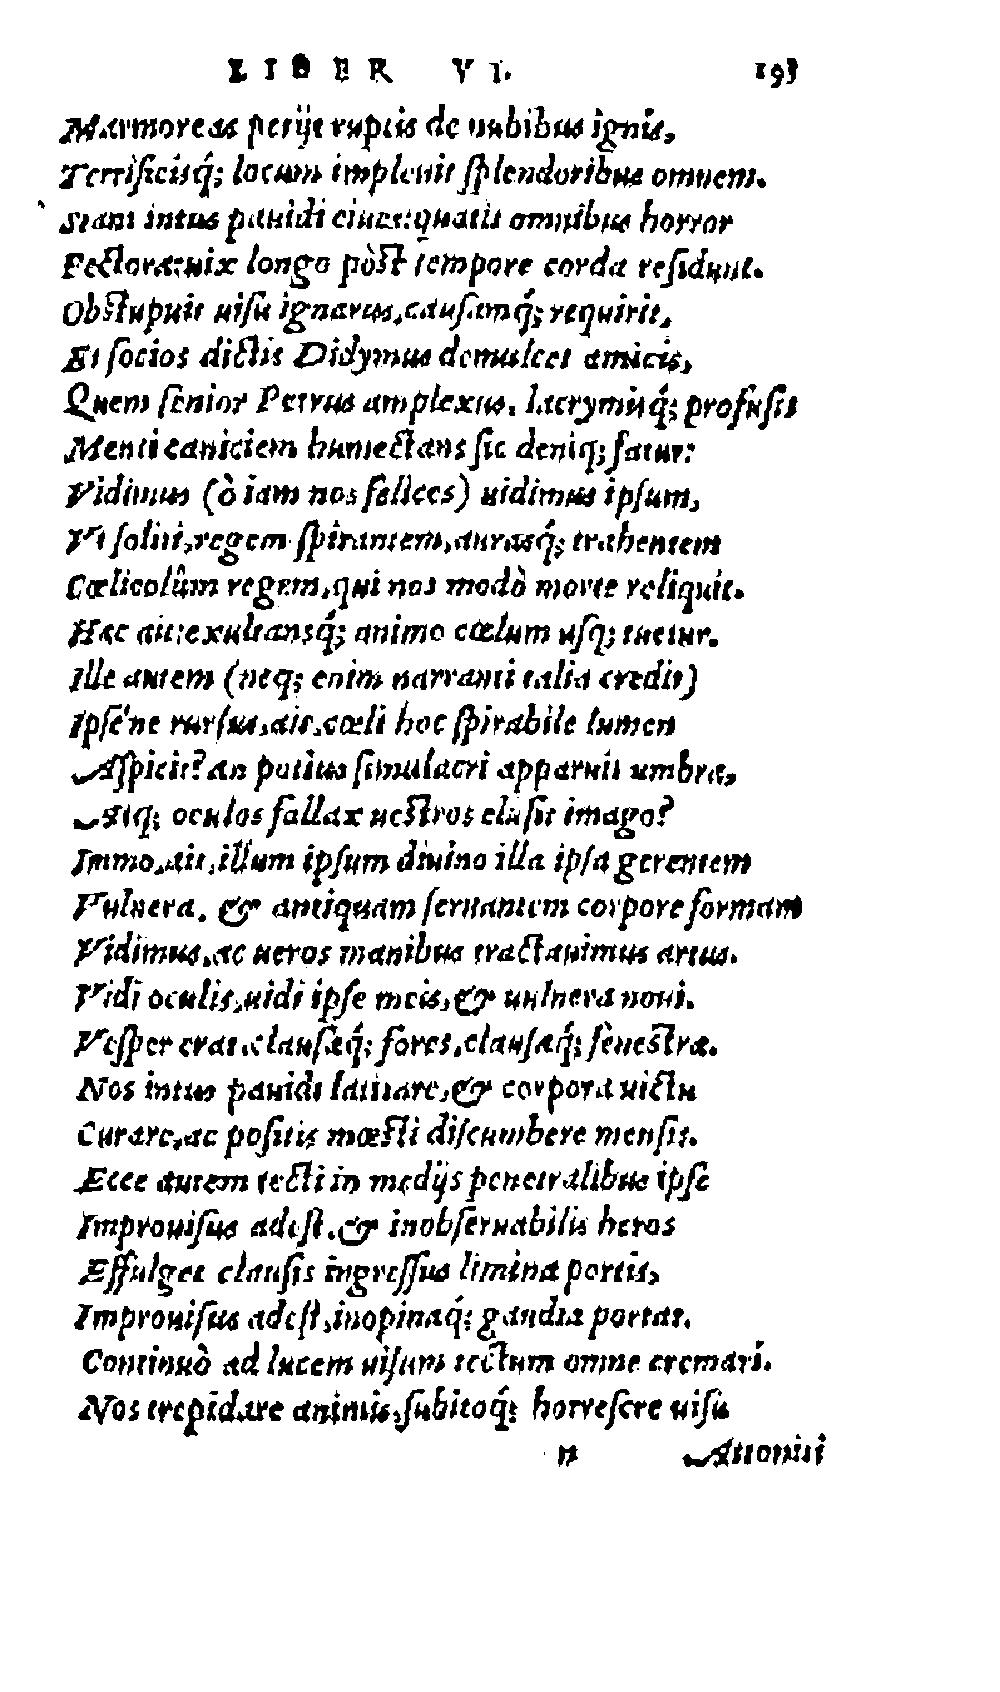 LIBER VI. 193
Marmoreas perijt ruptis de nubibus ignis,
Terrificisq́; locum impleuit ſplendoribus omnem.
Stant intus pauidi ciues: quatit omnibus horror
Pectora: uix longo pòst tempore corda reſidunt.
Obstupuit uiſu ignarus, cauſamq́; requirit,
Et ſocios dictis Didymus demulcet amicis,
Quem ſenior Petrus amplexus, lacrymisq́; profuſis
Menti caniciem humectans ſic deniq; fatur:
Vidimus (ò iam nos felices) uidimus ipſum,
Vt ſoliti, regem ſpirantem, aurasq́; trahentem
Cœlicolûm regem, qui nos modò morte reliquit.
Hæc ait: exultansq́; animo cœlum uſq; tuetur.
Ille autem (neq; enim narranti talia credit)
Ipſe'ne rurſus, ait, cœli hoc ſpirabile lumen
Aſpicit? an potius ſimulacri apparuit umbra,
Atq; oculos fallax nestros eluſit imago?
Immo, ait, illum ipſum diuino illa ipſa gerentem
Vulnera, & antiquam ſeruantem corpore formam
Vidimus, ac ueros manibus tractauimus artus.
Vidi oculis, uidi ipſe meis, & uulnera noui.
Veſper erat, clauſæq́; fores, clauſæq́; fenestræ.
Nos intus pauidi latitare, & corpora uictu
Curare, ac poſitis mœsti diſcumbere menſis.
Ecce autem tecti in medijs penetralibus ipſe
Improuiſus adeſt, & inobſeruabilis heros
Effulget clauſis ingreſſus limina portis,
Improuiſus adeſt, inopinaq́; gaudia portat.
Continuò ad lucem uiſum tectum omne cremari.
Nos trepidare animis, ſubitoq́; horreſcere uiſu
n Attoniti